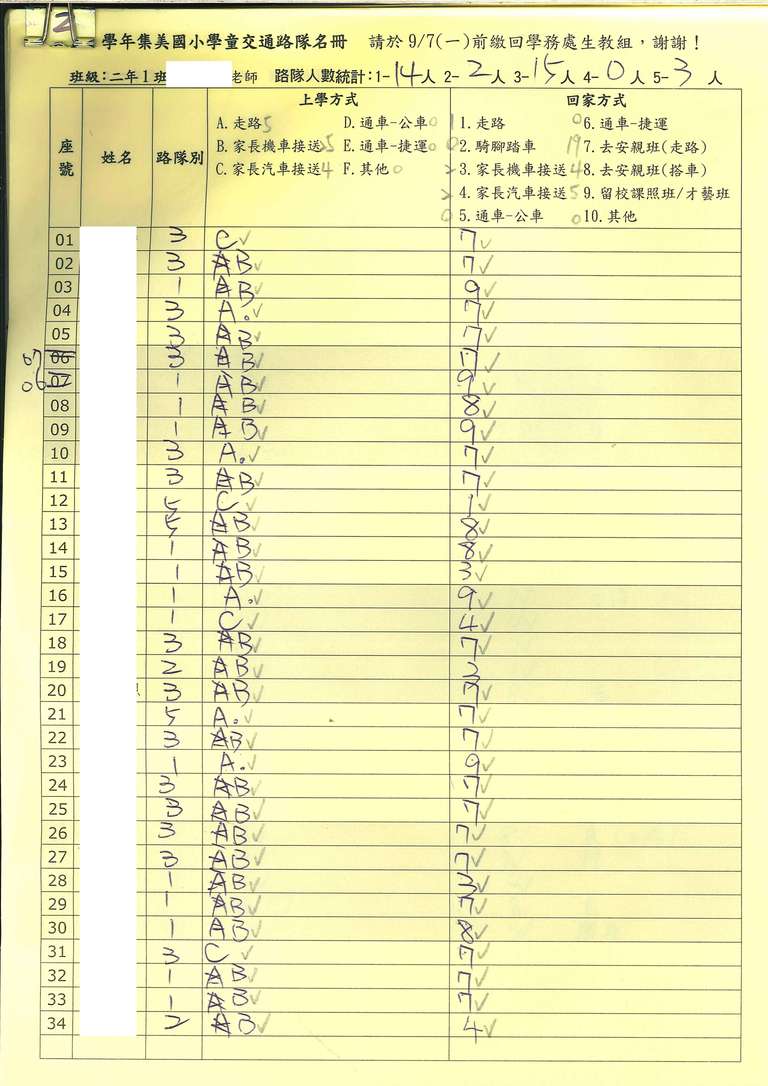 2
學年集美國小學童交通路隊名冊 請於9/7(一)前繳回學務處生教組，謝謝！
班級：二年1班 老師 路隊人數統計：1-14人 2-2人 3-15人 4-0人 5-3人
座號 姓名 路隊別 上學方式 回家方式
A.走路5 D.通車-公車0 1 1.走路 0 6.通車-捷運
B.家長機車接送25 E.通車-捷運0 0 2.騎腳踏車 19 7.去安親班(走路)
C.家長汽車接送4 F.其他0 2 3.家長機車接送 4 8.去安親班(搭車)
2 4.家長汽車接送 5 9.留校課照班/才藝班
0 5.通車-公車 0 10.其他
01 3 C✓ 7✓
02 3 A B✓ 7✓
03 1 A B✓ 9✓
04 3 A.✓ 7✓
05 3 A B✓ 7✓
07 06 3 A B✓ 7✓
06 07 1 A B✓ 9✓
08 1 A B✓ 8✓
09 1 A B✓ 9✓
10 3 A.✓ 7✓
11 3 A B✓ 7✓
12 5 C✓ 1✓
13 5 A B✓ 8✓
14 1 A B✓ 8✓
15 1 A B✓ 3✓
16 1 A.✓ 9✓
17 1 C✓ 4✓
18 3 A B✓ 7✓
19 2 A B✓ 3
20 3 A B✓ 7✓
21 5 A.✓ 7✓
22 3 A B✓ 7✓
23 1 A.✓ 9✓
24 3 A B✓ 7✓
25 3 A B✓ 7✓
26 3 A B✓ 7✓
27 3 A B✓ 7✓
28 1 A B✓ 3✓
29 1 A B✓ 7✓
30 1 A B✓ 8✓
31 3 C✓ 7✓
32 1 A B✓ 7✓
33 1 A B✓ 7✓
34 2 A B✓ 4✓